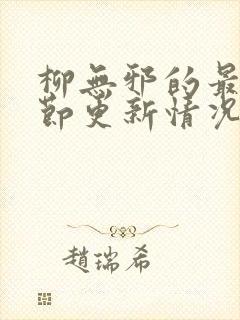 柳無邪的最
節更新情況
趙瑞希